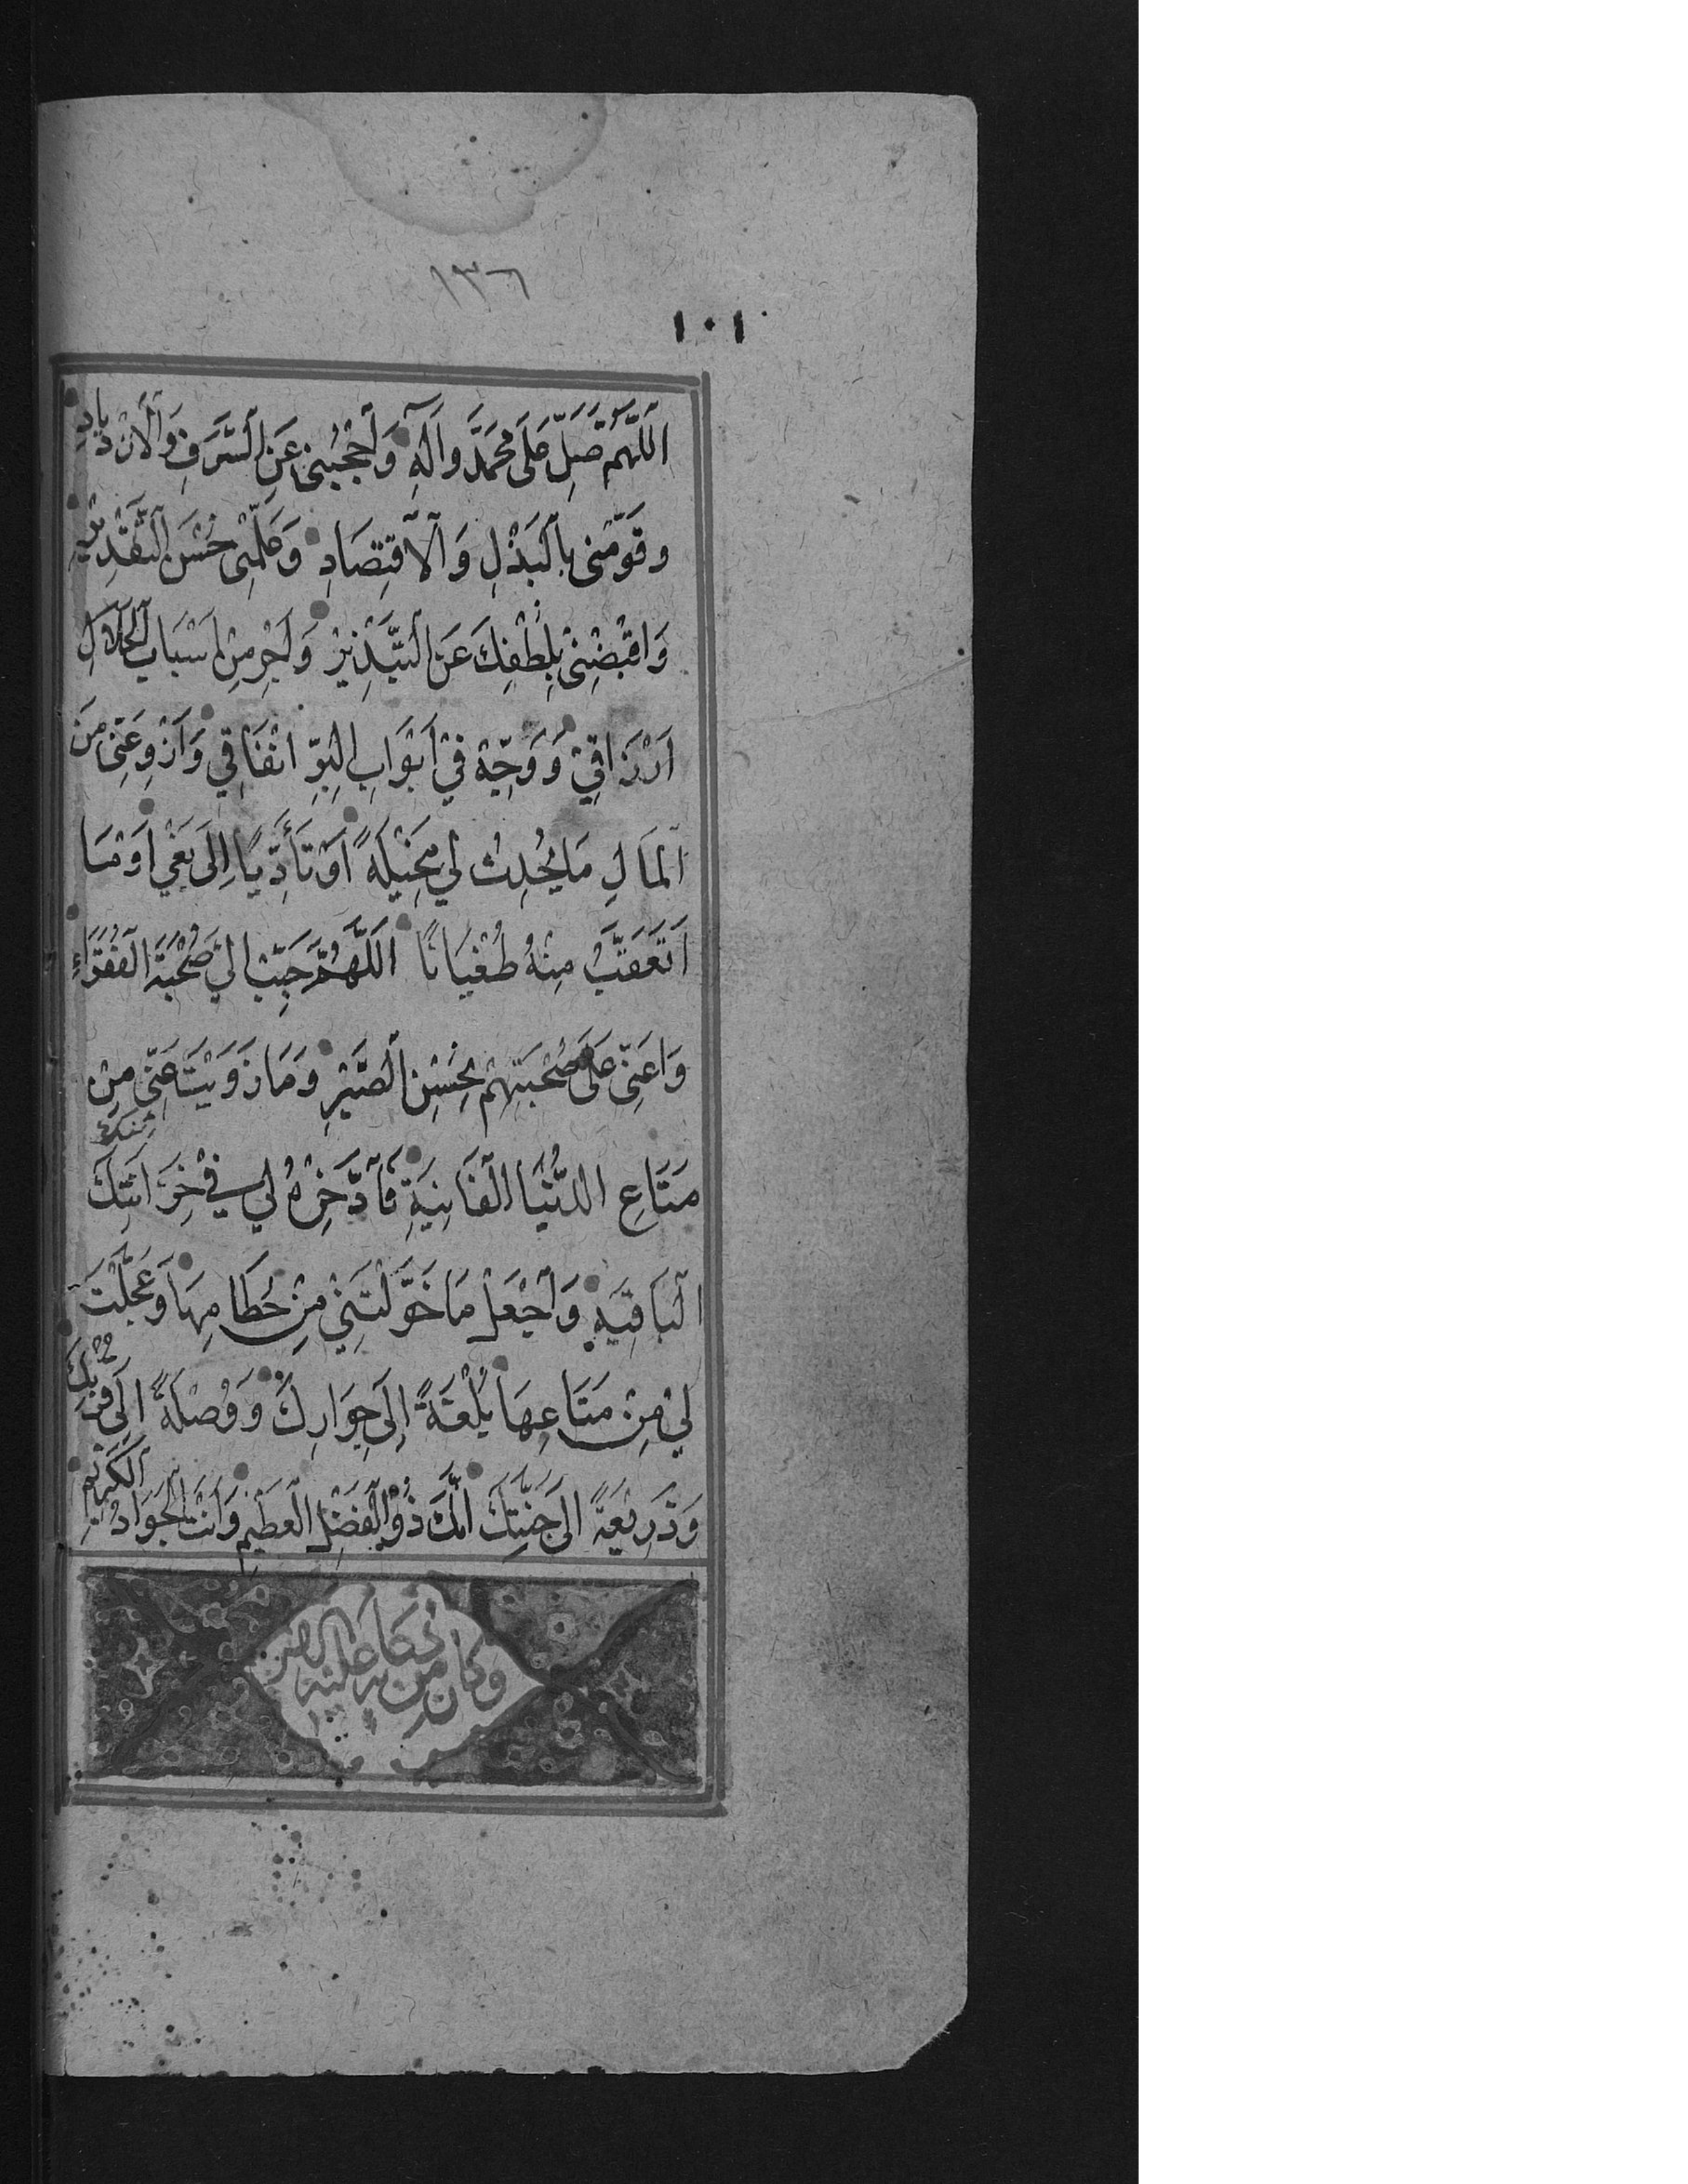 ١٣٦
١٠١
اَللّٰهُمَّ صَلِّ عَلَى مُحَمَّدٍ وَاٰلِهِ وَاَحْجُبْنِى عَنِ السَّرَفِ وَالْاَزْدِيَادِ
وَقَوِّمْنِى بِالْبَذْلِ وَالْاِقْتِصَادِ وَعَلِّمْنِى حُسْنَ التَّقْدِيْرِ
وَاقْبِضْنِىْ بِلُطْفِكَ عَنِ التَّبْذِيْرِ وَاَجْرِ مِنْ اَسْبَابِ الْحَلَالِ
اَرْزَاقِيْ وَوَجِّهْ فِيْ اَبْوَابِ الْبِرِّ اِنْفَاقِي وَازْوِ عَنِّى مِنَ
الْمَالِ مَا يُحْدِثُ لِي مَخِيْلَةً اَوْ تَأَدِّيًا اِلَى بَغْيٍ اَوْ مَا
اَتَعَقَّبُ مِنْهُ طُغْيَانًا اَللّٰهُمَّ حَبِّبْ اِلَيَّ صُحْبَةَ الْفُقَرَاءِ
وَاَعِنِّى عَلَى صُحْبَتِهِمْ بِحُسْنِ الصَّبْرِ وَمَا زَوَيْتَ عَنِّى مِنْ
مَتَاعِ الدُّنْيَا الْفَانِيَةِ فَاَدَّخِرْهُ لِي فِيْ خَزَائِنِكَ
الْبَاقِيَةِ وَاَجْعَلْ مَا خَوَّلْتَنِيْ مِنْ حُطَامِهَا وَعَجَّلْتَ
لِيْ مِنْ مَتَاعِهَا بُلْغَةً اِلَى جِوَارِكَ وَوُصْلَةً اِلَى قُرْبِكَ
وَذَرِيْعَةً اِلَى جَنَّتِكَ اِنَّكَ ذُوْالْفَضْلِ الْعَظِيْمِ وَاَنْتَ الْجَوَادُ الْكَرِيْمُ
وكان من دعائه عليه